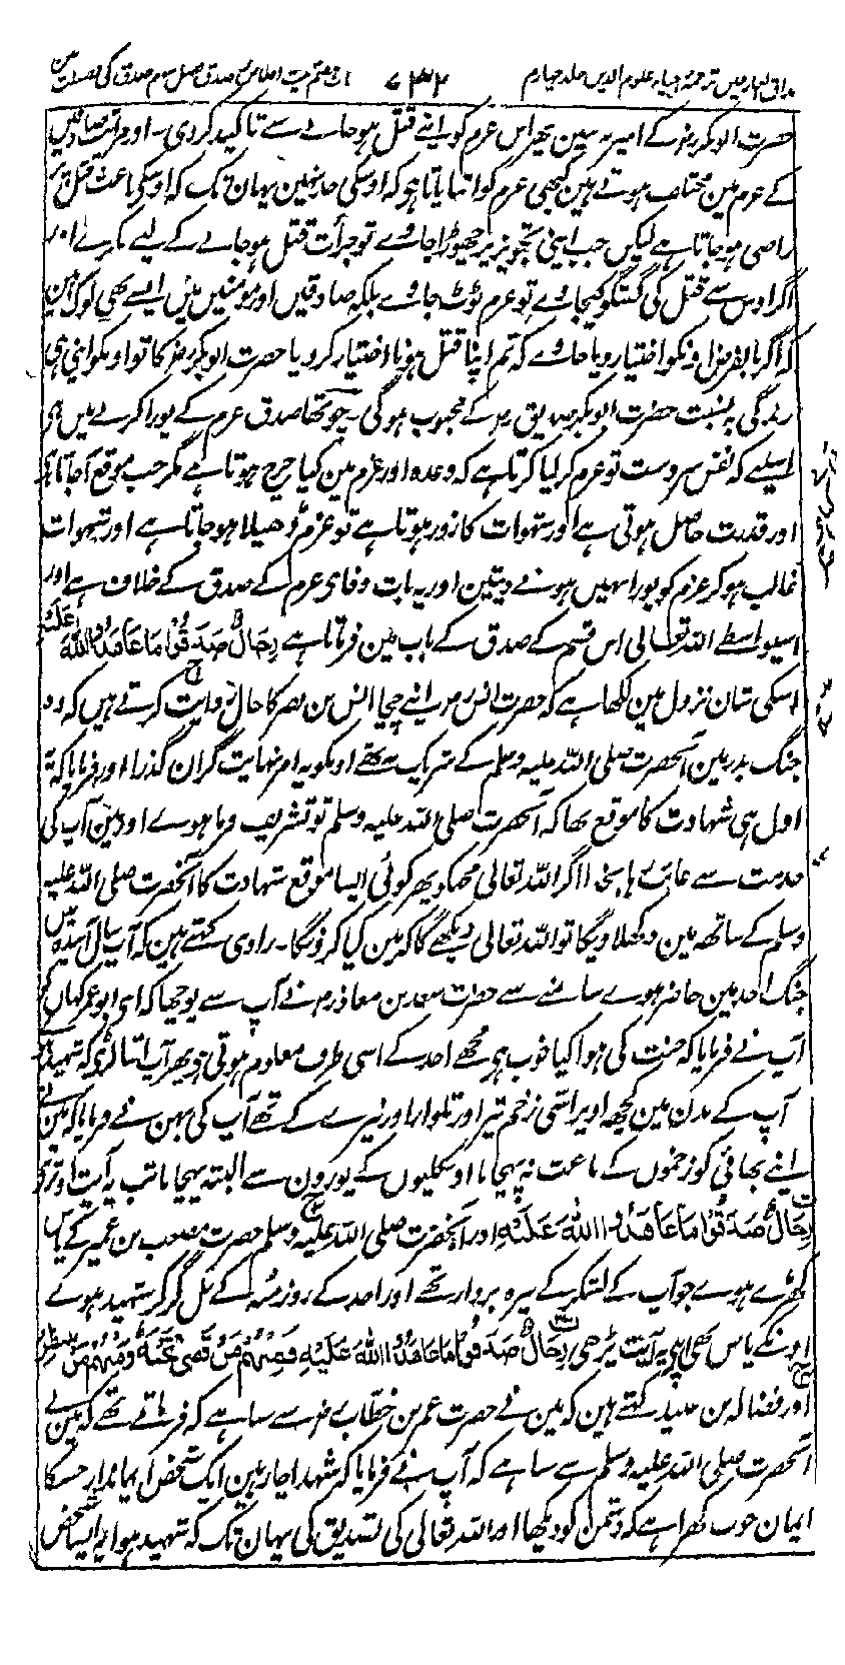 مذاق العارفین ترجمہ احیاء علوم الدین جلد چہارم ۷۳۲ باب ہفتم نیت اخلاص صدق فصل سوم صدق کی فضیلت میں
حضرت ابوبکر رضہ کے امیر نہ بنین پھر اس عزم کو اپنے قتل ہو جانے سے تاکید کر دی۔ اور مراتب صادقین
کے عزم مین مختلف ہوتے ہین کبھی عزم کو اتنا پاتا ہو کہ اوسکی حد نہین یہان تک کہ اوسکی باعث قتل پر
راضی ہو جاتا ہے لیکن جب اپنی تجویز پر چھوڑا جاوے تو جرأت قتل ہو جانے کے لیے نکرے اور
اگر اوس سے قتل کی گفتگو کیجاوے تو عزم ٹوٹ جاوے بلکہ صادقین اور مومنین مین ایسے بھی لوگ ہین
کہ اگر بالفرض اونکو اختیار دیا جاوے کہ تم اپنا قتل ہونا اختیار کرو یا حضرت ابوبکر رضہ کا تو اونکو اپنی ہی
زندگی بہ نسبت حضرت ابوبکر صدیق رضہ کے محبوب ہوگی۔ چوتھا صدق عزم کے پورا کرنے مین ہی
اسلیے کہ نفس سردست تو عزم کر لیا کرتا ہے کہ وعدہ اور عزم مین کیا حرج ہوتا ہے مگر جب موقع آجاتا ہے
اور قدرت حاصل ہوتی ہے اور شہوات کا زور ہوتا ہے تو عزم ڈھیلا ہو جاتا ہے اور شہوات
غالب ہو کر عزم کو پورا نہین ہونے دیتین اور یہ بات وفای عزم کے صدق کے خلاف ہے اور
اسیواسطے اللہ تعالی اس قسم کے صدق کے باب مین فرماتا ہے رِجَالٌ صَدَقُوْا مَا عَاهَدُوا اللّٰهَ عَلَيْهِ
اسکی شان نزول مین لکھا ہے کہ حضرت انس رضہ اپنے چچا انس بن نضر کا حال روایت کرتے ہین کہ وہ
جنگ بدر مین آنحضرت صلی اللہ علیہ وسلم کے شریک نتھے اونکو یہ امر نہایت گران گذرا اور فرمایا کہ یہ
اول ہی شہادت کا موقع تھا کہ آنحضرت صلی اللہ علیہ وسلم تو تشریف فرما ہوے اور مین آپ کی
خدمت سے غائب رہا بخدا اگر اللہ تعالی مجھکو پھر کوئی ایسا موقع شہادت کا آنحضرت صلی اللہ علیہ
وسلم کے ساتھ مین دکھلاویگا تو اللہ تعالی دیکھے گا کہ مین کیا کرونگا۔ راوی کہتے ہین کہ آپ سال آیندہ مین
جنگ احد مین حاضر ہوے سامنے سے حضرت سعد بن معاذ رضہ نے آپ سے پوچھا کہ ای ابو عمر کہان کو
آپ نے فرمایا کہ جنت کی ہوا کیا خوب ہی مجھے احد کے اسی طرف معلوم ہوتی ہی پھر آپ اتنا لڑے کہ شہید ہوے
آپ کے بدن مین کچھ اوپر اسّی زخم تیر اور تلوار اور نیزے کے تھے آپ کی بہن نے فرمایا کہ مین نے
اپنے بھائی کو زخمون کے باعث نہ پہچانا اونگلیون کے پورون سے البتہ پہچانا تب یہ آیت اوتری
رِجَالٌ صَدَقُوْا مَا عَاهَدُوا اللّٰهَ عَلَيْهِ اور آنحضرت صلی اللہ علیہ وسلم حضرت مصعب بن عمیر کے پاس
کھڑے ہوے جو آپ کے لشکر کے نیزہ بردار تھے اور احد کے روز منہ کے بل گر کر شہید ہوے
اونکے پاس بھی اپنے یہ آیت پڑھی رِجَالٌ صَدَقُوْا مَا عَاهَدُوا اللّٰهَ عَلَيْهِ فَمِنْهُمْ مَنْ قَضٰى نَحْبَهٗ وَمِنْهُمْ مَنْ يَنْتَظِرُ
اور فضالہ بن عبید کہتے ہین کہ مین نے حضرت عمر بن خطاب رضہ سے سنا ہے کہ فرماتے تھے کہ مین نے
آنحضرت صلی اللہ علیہ وسلم سے سنا ہے کہ آپ نے فرمایا کہ شہدا چار ہین ایک شخص ایماندار جسکا
ایمان خوب کھرا ہے کہ دشمن کو دیکھا اور اللہ تعالی کی تصدیق کی یہان تک کہ شہید ہوا یہ ایسا شخص